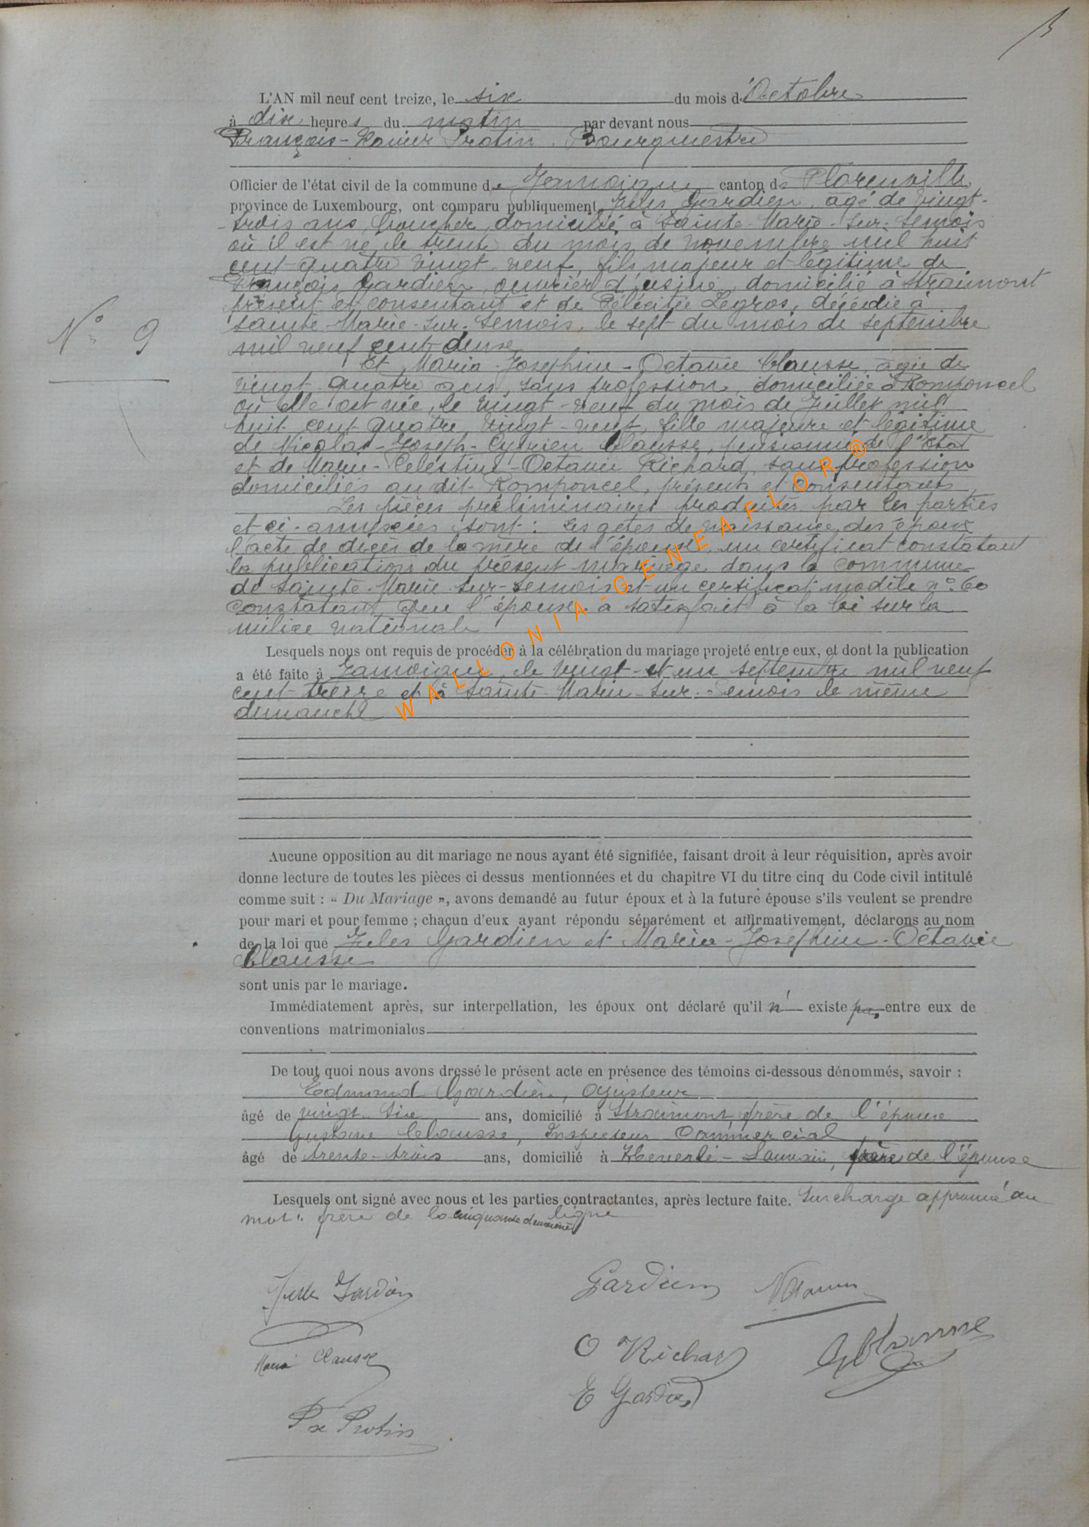 L'AN mil neuf cent treize, le six du mois d'Octobre
à dix heures du matin par devant nous
François-Xavier Protin, Bourgmestre
Officier de l'état civil de la commune de Jamoigne canton de Florenville
province de Luxembourg, ont comparu publiquement, Jules Gardien, âgé de vingt-
trois ans, boucher, domicilié à Sainte-Marie-sur-Semois
où il est né le trente du mois de novembre mil huit
cent quatre vingt-neuf, fils majeur et légitime de
François Gardien, ouvrier d'usine, domicilié à Straimont
présent et consentant et de Félicitée Legros, décédée à
Sainte-Marie-sur-Semois, le sept du mois de septembre
mil neuf cent douze
Et Maria-Joséphine-Octavie Clausse, âgée de
vingt-quatre ans, sans profession, domiciliée à Romponcel
où elle est née, le vingt-neuf du mois de Juillet mil
huit cent quatre vingt-neuf, fille majeure et légitime
de Nicolas-Joseph- Clausse, pensionné de l'état
et de Marie-Célestine-Octavie Richard, sans profession
domiciliés au dit Romponcel, présents et consentants
Les pièces préliminaires produites par les parties
et ci-annexées sont : les actes de naissance des époux
l'acte de décès de la mère de l'époux, un certificat constatant
la publication du présent mariage dans la commune
de Sainte-Marie-sur-Semois et un certificat modèle n° 60
constatant que l'époux a satisfait à la loi sur la
milice nationale
Lesquels nous ont requis de procéder à la célébration du mariage projeté entre eux, et dont la publication
a été faite à Jamoigne, le vingt-et un septembre mil neuf
cent-treize et à Sainte-Marie-sur-Semois le même
dimanche
Aucune opposition au dit mariage ne nous ayant été signifiée, faisant droit à leur réquisition, après avoir
donne lecture de toutes les pièces ci dessus mentionnées et du chapitre VI du titre cinq du Code civil intitulé
comme suit : « Du Mariage », avons demandé au futur époux et à la future épouse s'ils veulent se prendre
pour mari et pour femme ; chaçun d'eux ayant répondu séparément et affirmativement, déclarons au nom
de la loi que Jules Gardien et Maria-Joséphine-Octavie
Clausse
sont unis par le mariage.
Immédiatement après, sur interpellation, les époux ont déclaré qu'il n' existe pas entre eux de
conventions matrimoniales
De tout quoi nous avons dressé le présent acte en présence des témoins ci-dessous dénommés, savoir :
Edmond Gardien, ajusteur
âgé de vingt-six ans, domicilié à Straimont frère de l'époux
Gustave Clausse, Inspecteur Commercial
âgé de trente-trois ans, domicilié à Héverlé-Louvain, frère de l'épouse
Lesquels ont signé avec nous et les parties contractantes, après lecture faite. Surcharge approuvé au
mot : frère de la cinquante deuxième ligne
Jules Gardien
Gardien
N Clausse
Maria Clausse
O Richard
G Clausse
E Gardien
Fx Protin
N° 9
WALLONIA-GENEAFLOR ©